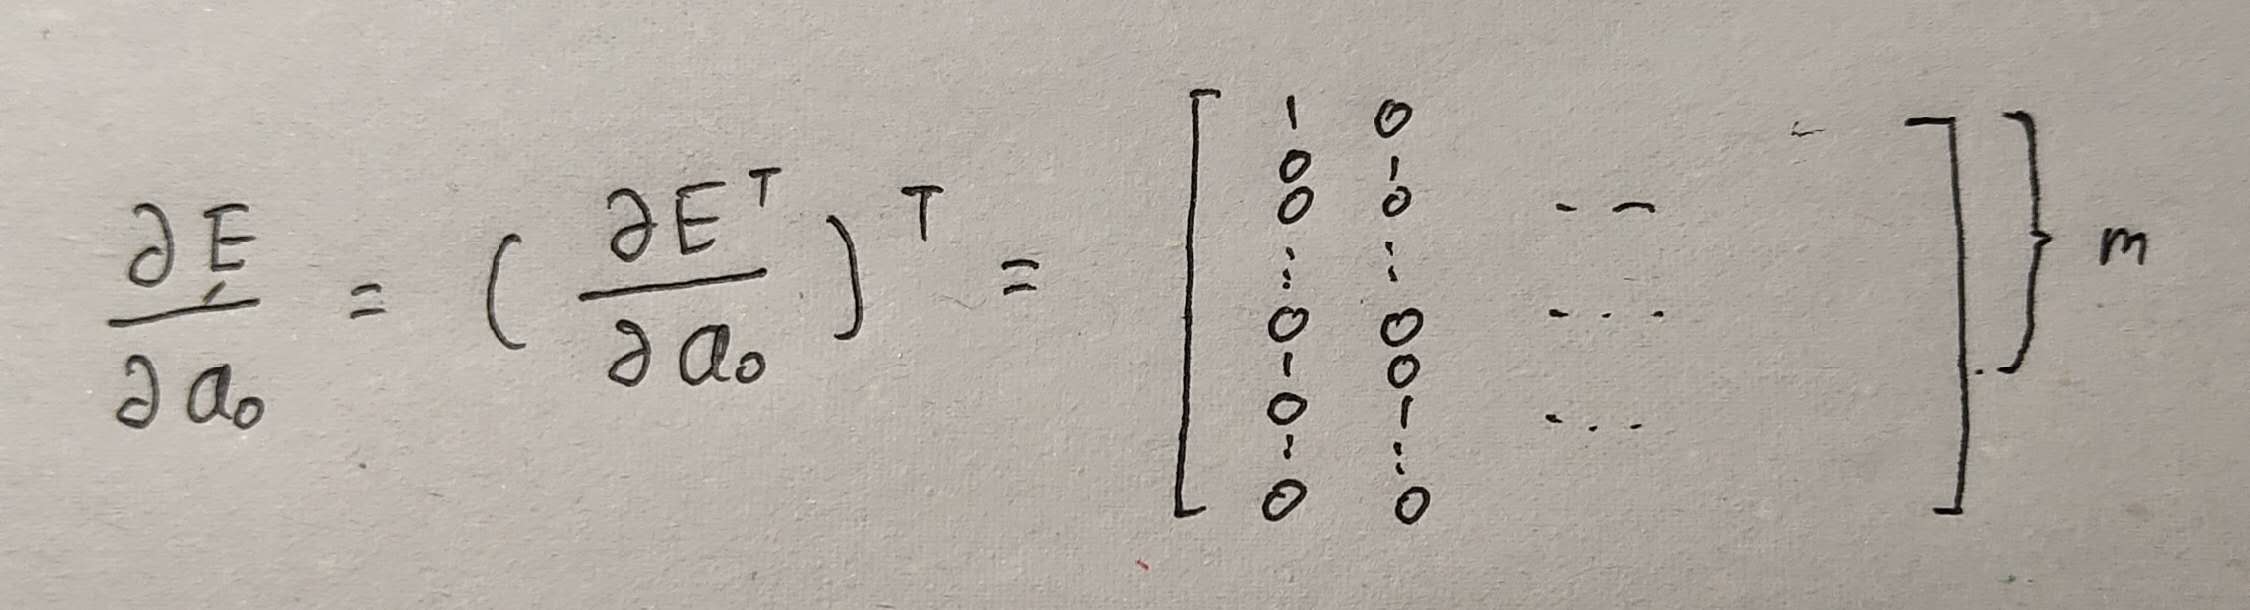 ∂E/∂a₀ = (∂Eᵀ/∂a₀)ᵀ = [ 1 0
0 1
0 0 - -
⋮ ⋮
0 0 . . .
1 0
0 1 . . .
⋮ ⋮
0 0 ] } m